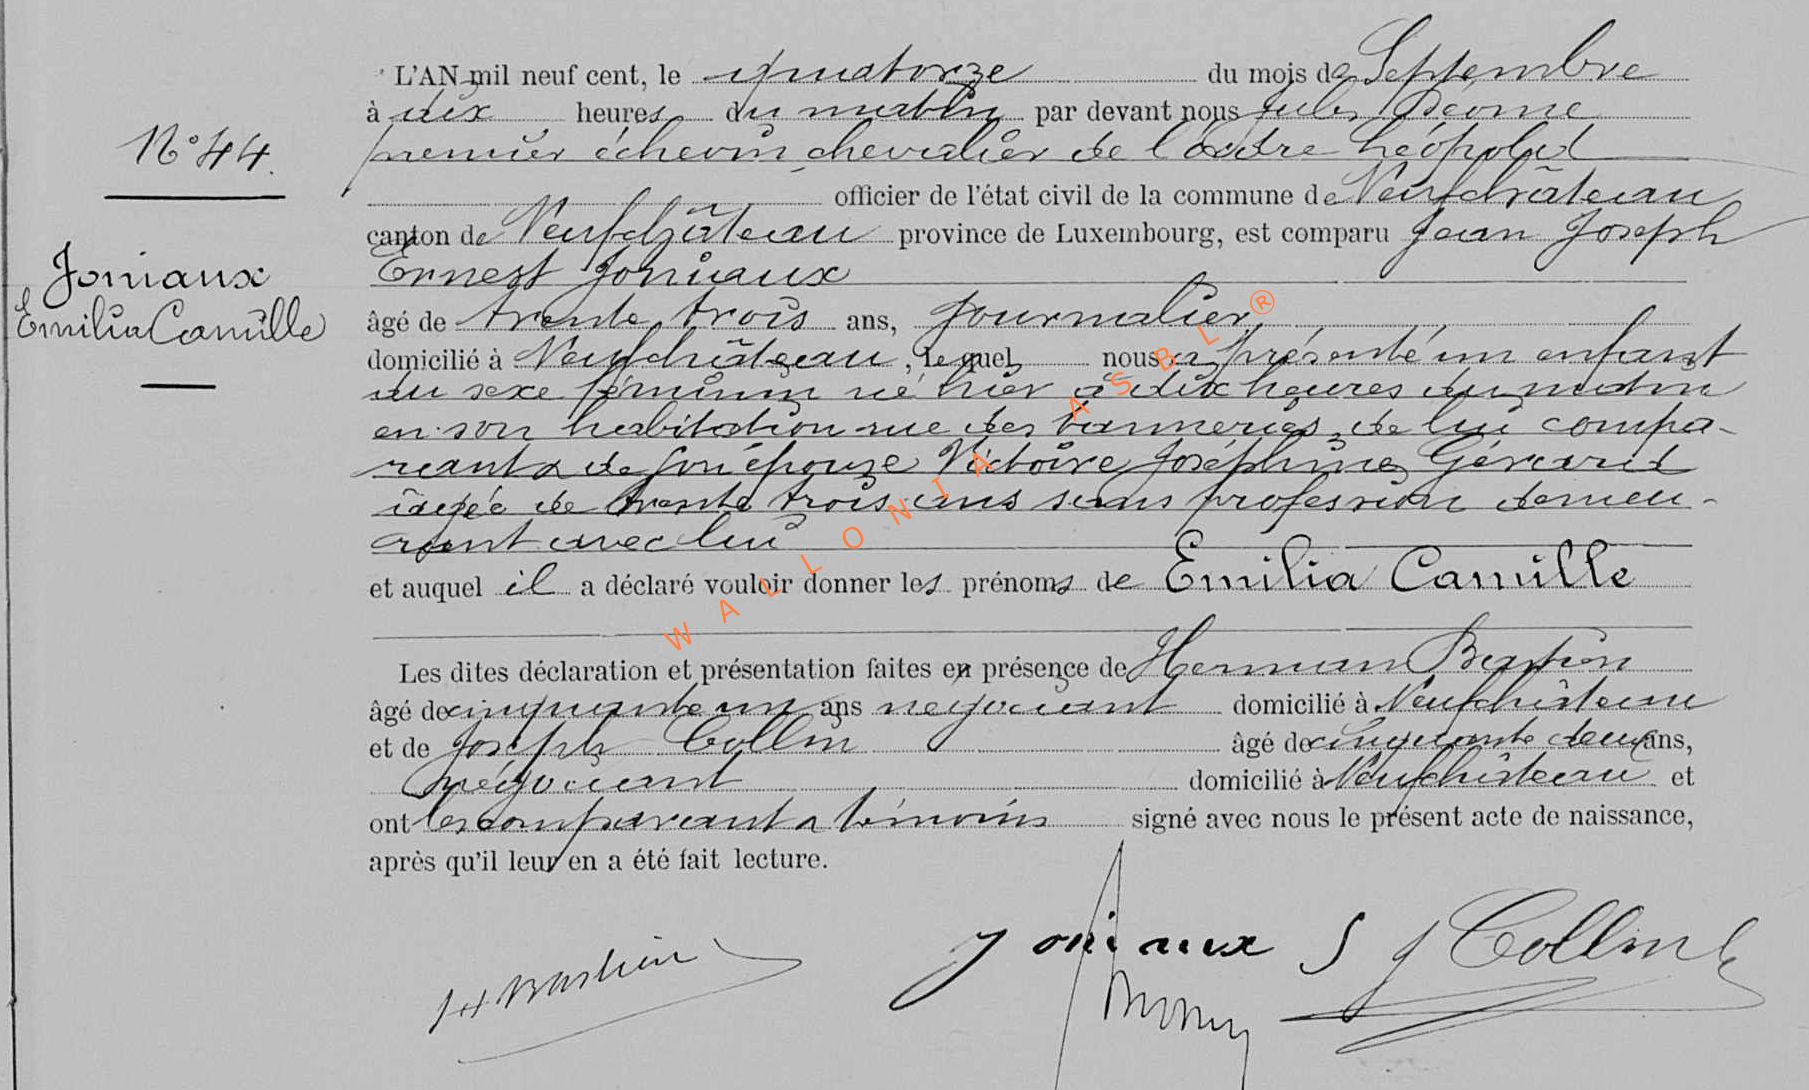 L'AN mil neuf cent, le quatorze du mois de Septembre
à dix heures du matin par devant nous Jules
N° 44. premier échevin, chevalier de l'ordre Léopold
officier de l'état civil de la commune de Neufchâteau
canton de Neufchâteau province de Luxembourg, est comparu Jean Joseph
Joniaux Ernest Joniaux
Emilia Camille âgé de trente trois ans, journalier
domicilié à Neufchâteau, lequel nous a présenté un enfant
du sexe féminin né hier à dix heures du matin
en son habitation rue des tanneries, de lui compa-
rant & de son épouse Victoire Joséphine Gérard
âgée de trente trois ans sans profession demeu-
rant avec lui
et auquel il a déclaré vouloir donner les prénoms de Emilia Camille
Les dites déclaration et présentation faites en présence de Herman Bastien
âgé de cinquante un ans négociant domicilié à Neufchâteau
et de Joseph Collin âgé de cinquante deux ans,
négociant domicilié à Neufchâteau et
ont les comparant & témoins signé avec nous le présent acte de naissance,
après qu'il leur en a été fait lecture.
H Bastien Joniaux J J Collin
WALLONIA ASBL ®